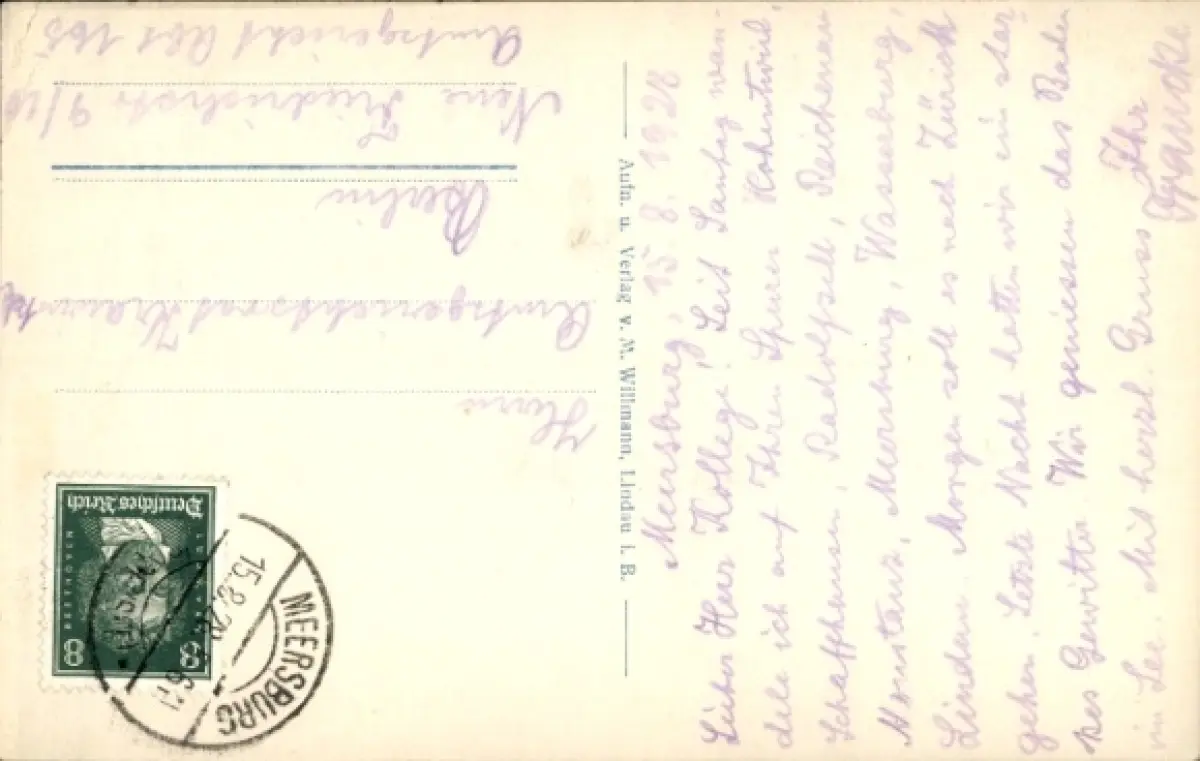 Meersburg, 15. 8. 1928
Lieber Herr Kollege! Seit Samstag wan-
dele ich auf Ihren Spuren Hohentwiel,
Schaffhausen, Radolfzell, Reichenau
Konstanz, Meersburg, Wasserburg,
Lindau. Morgen soll es nach Zürich
gehen. Letzte Nacht hatten wir ein star-
kes Gewitter. Wir geniessen das Baden
im See. Mit herzl. Gruss Ihr
Aufn. u. Verlag v. M. Willmann, Lindau i. B.
Herrn
Amtsgerichtsrat
Berlin
Neue Friedrichstr 9/10
Amtsgericht Abt 165
Deutsches Reich
BEETHOVEN
8 8
MEERSBURG
15.8.28